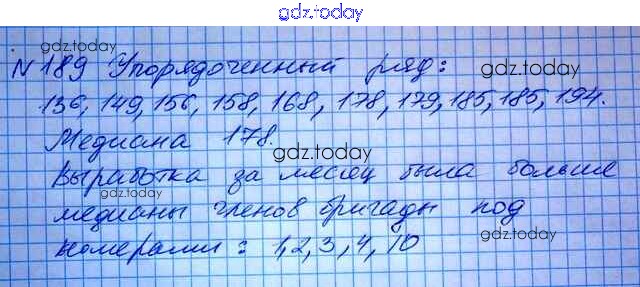 gdz.today
№189 Упорядоченный ряд:
gdz.today
gdz.today
136, 149, 156, 158, 168, 178, 179, 185, 185, 194.
Медиана 178.
gdz.today
Выработка за месяц была больше
gdz.today
медианы членов бригады под
номерами: 1, 2, 3, 4, 10
gdz.today